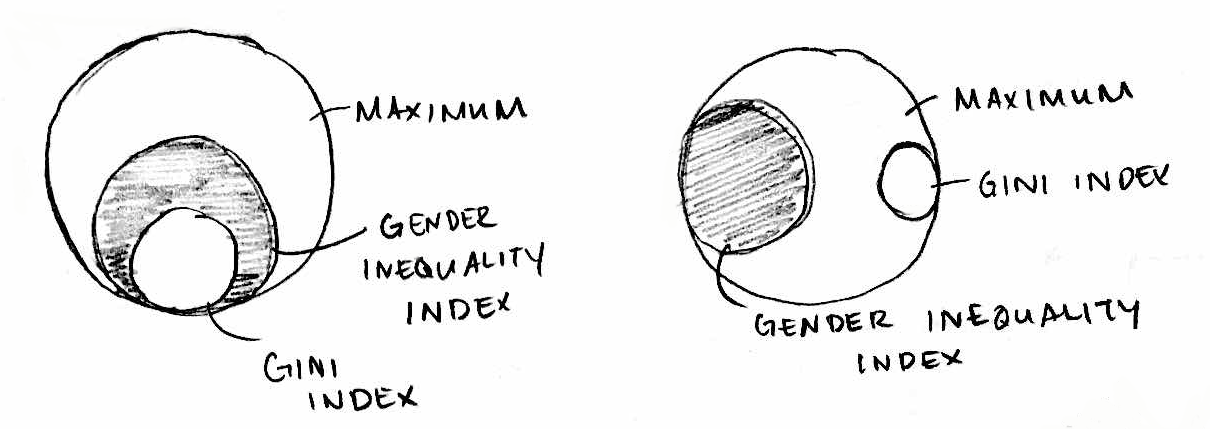 MAXIMUM
GENDER
INEQUALITY
INDEX
GINI
INDEX
MAXIMUM
GINI INDEX
GENDER INEQUALITY
INDEX